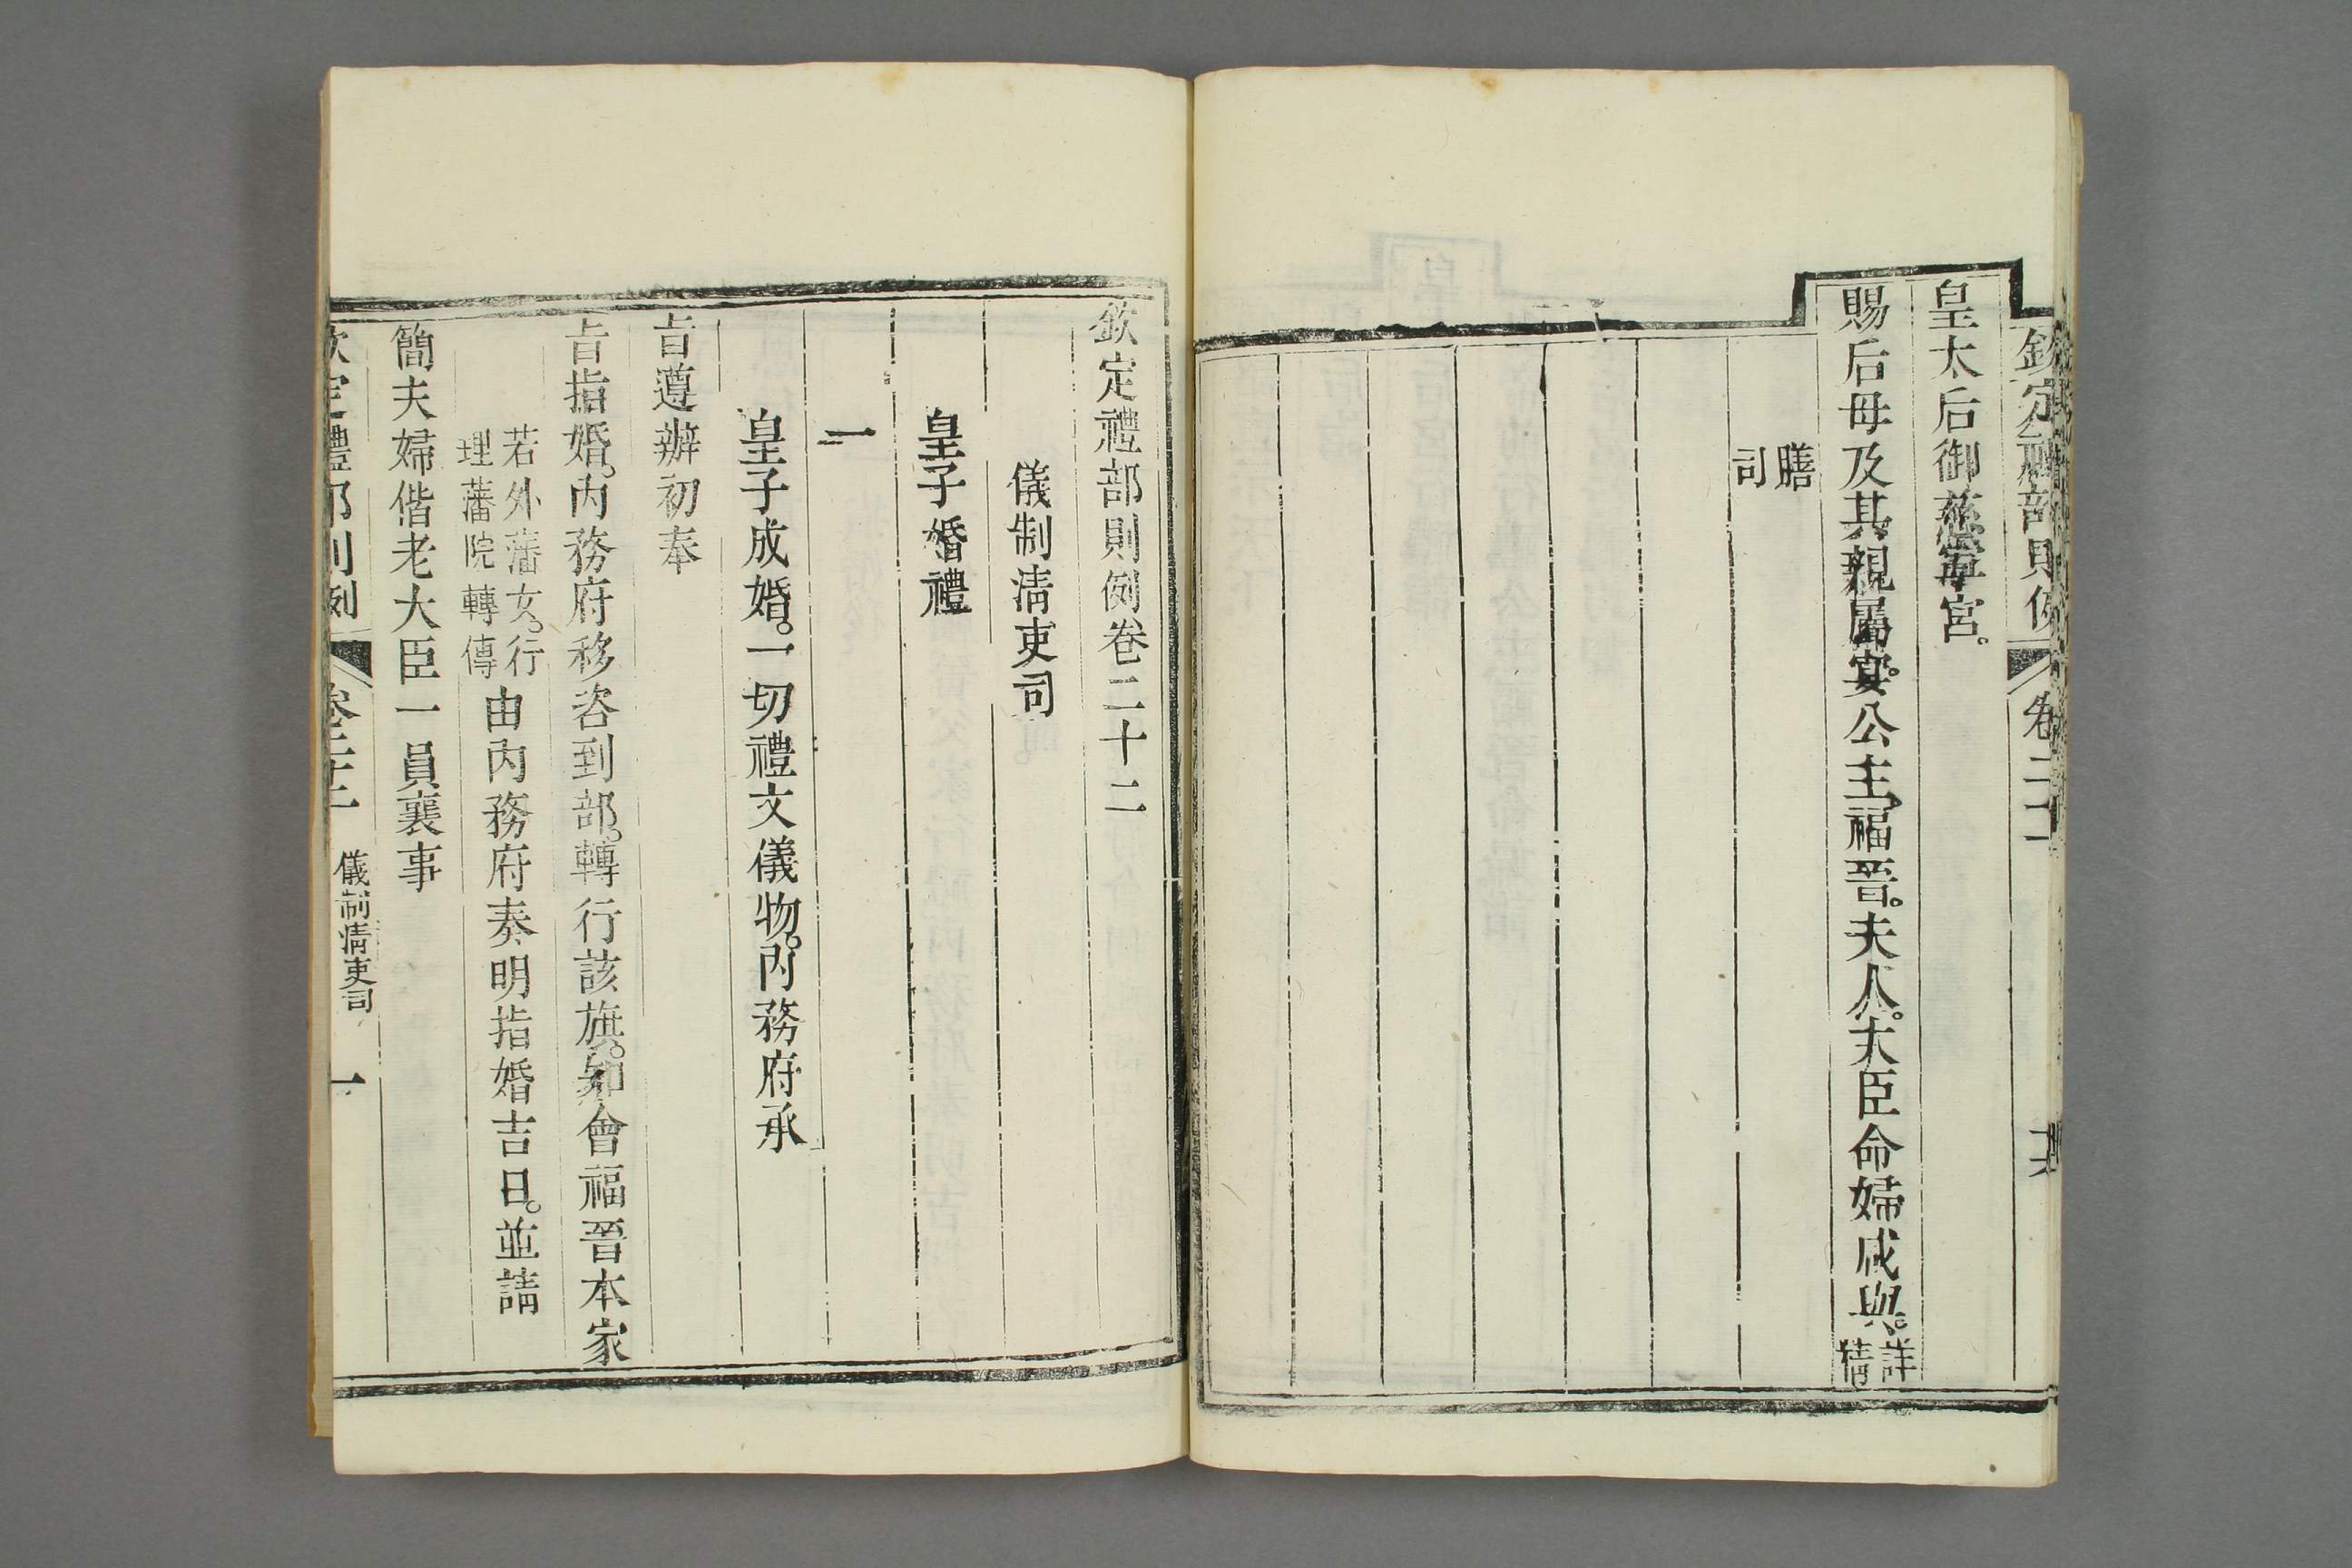 欽定禮部則例 卷二十一
皇太后御慈寧宮。
賜后母及其親屬宴。公主、福晉。夫人。大臣命婦咸與。詳精
膳司
欽定禮部則例卷二十二
儀制清吏司
皇子婚禮
一
皇子成婚。一切禮文儀物。內務府承
旨遵辦初奉
旨指婚。內務府移咨到部。轉行該旗。知會福晉本家
若外藩女。行理藩院轉傳由內務府奏明指婚吉日。並請
簡夫婦偕老大臣一員襄事
欽定禮部則例 卷二十二 儀制清吏司 一